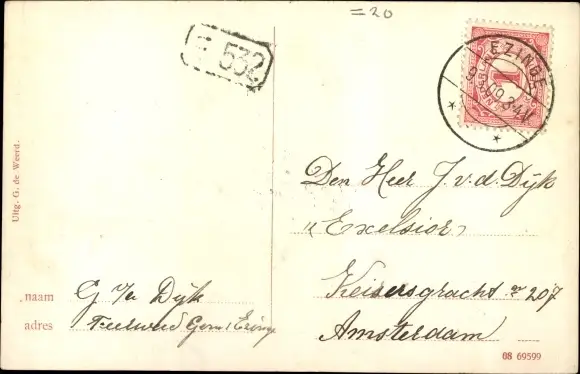 =20
532
EZINGE
1
Uitg. G. de Weerd.
Den Heer J. v. d. Dijk
"Excelsior"
Keisersgracht nr 207
Amsterdam
naam G v/d Dijk
adres Gem: Ezinge
08 69599